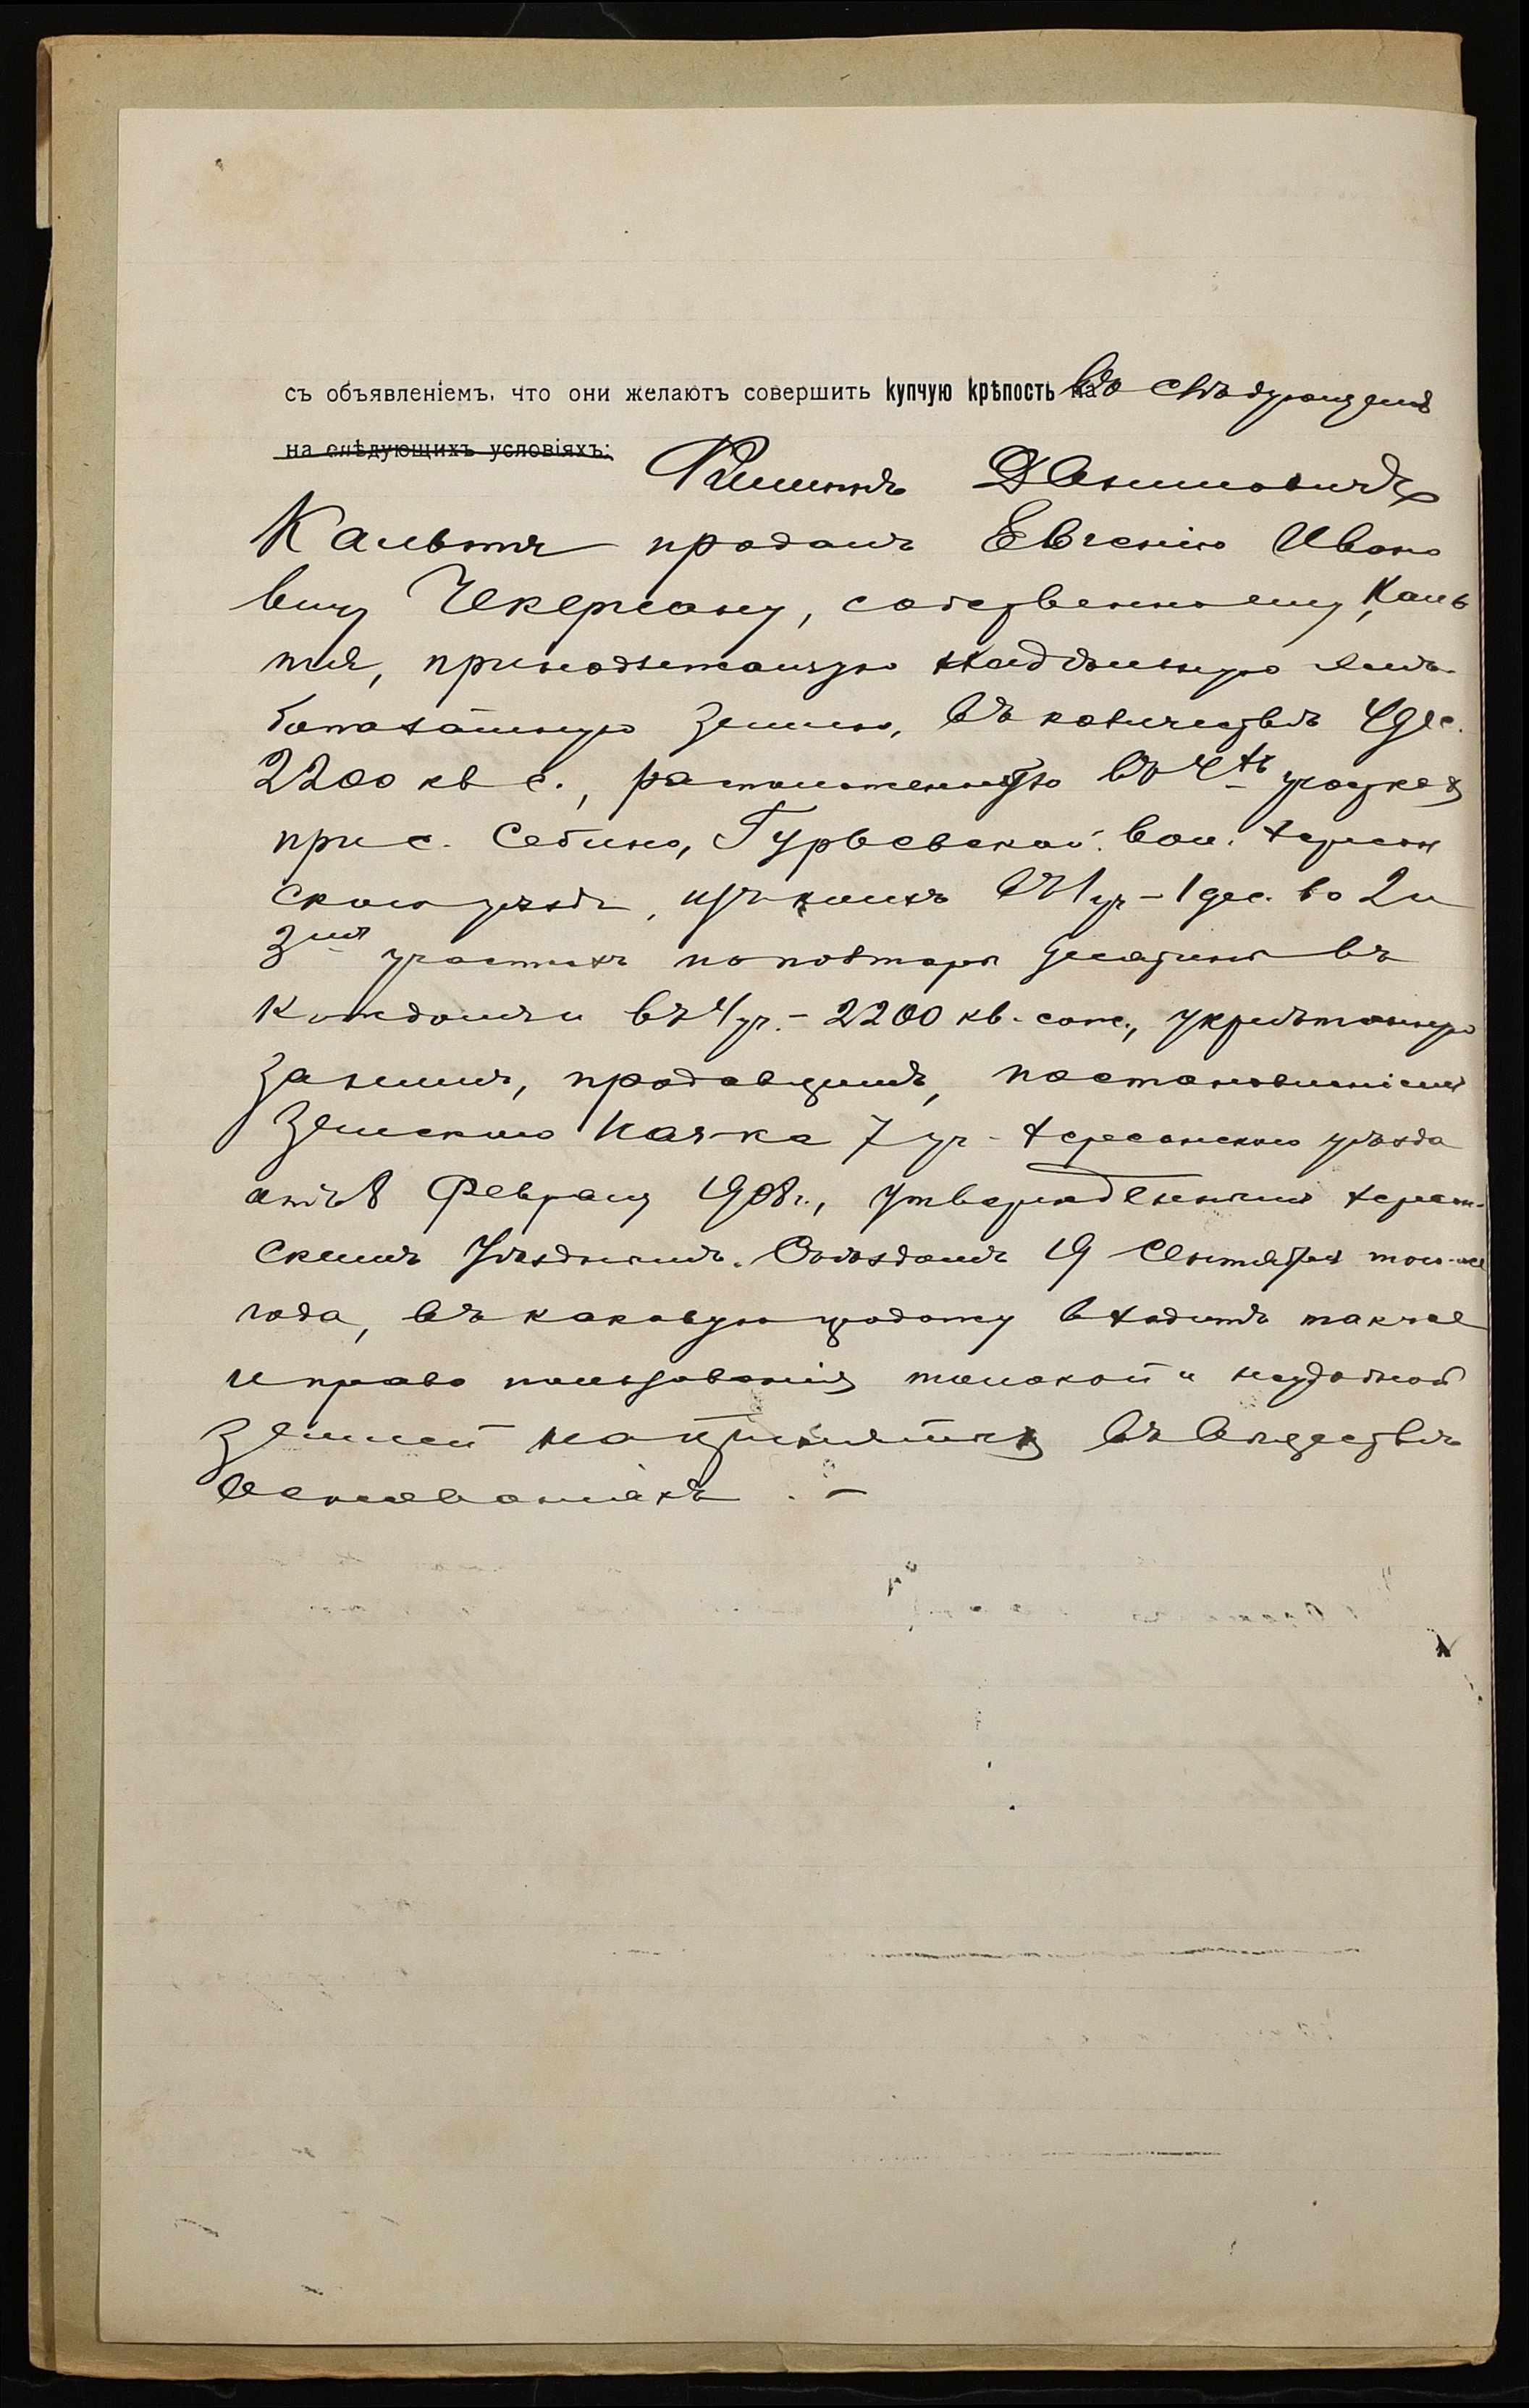 съ объявленіемъ, что они желаютъ совершить купчую крѣпость на въ слѣдующемъ
на слѣдующихъ условіяхъ:
Филиппъ Даниловичъ
Кальтя продалъ Евгенію Ивано
вичу Чекерсану, собственному, Каль
тя, принадлежащую надѣльную
землю, въ количествѣ 4 дес.
2200 кв с., расположенную въ 4хъ участкахъ
при с. Себино, Гурьевской вол. Херсон
скаго уѣзда, изъ коихъ въ 1 уч - 1 дес. во 2 и
3мъ участкахъ по полторы десятины въ
каждомъ и въ 4 уч. - 2200 кв. саж., укрѣпленную
за нимъ, продавцомъ, постановленіемъ
Земскаго Нач-ка 7 уч. Херсонскаго уѣзда
отъ 8 Февраля 1908 г., утвержденнымъ Херсон-
скимъ Уѣзднымъ Съѣздомъ 19 Сентября того-же
года, въ каковую продажу входитъ также
и право пользованія толокой и неудобной
землей на принятыхъ въ Обществѣ
основаніяхъ. -